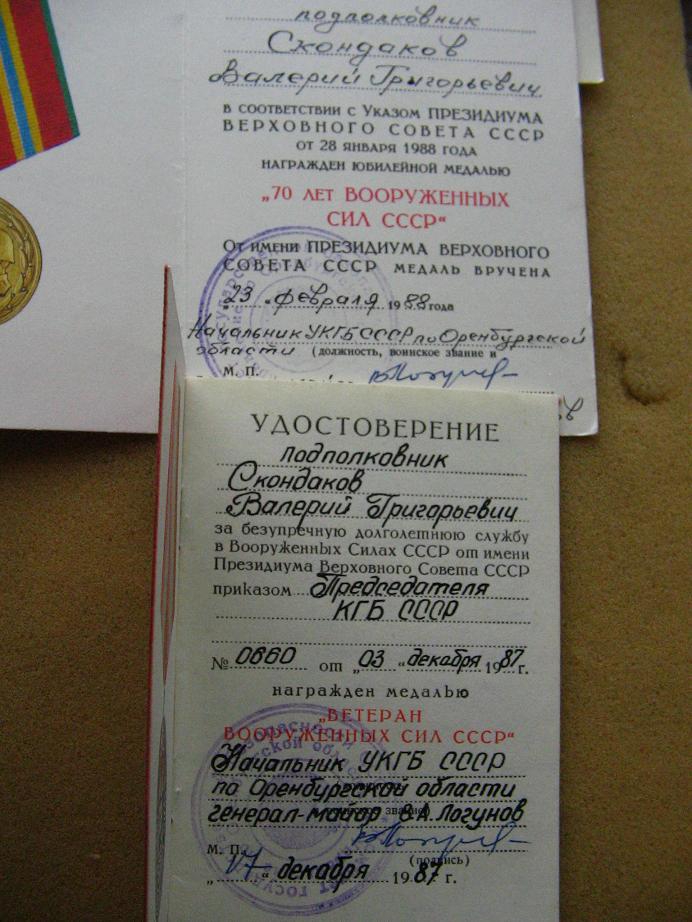 подполковник
Скондаков
Валерий Григорьевич
в соответствии с Указом ПРЕЗИДИУМА
ВЕРХОВНОГО СОВЕТА СССР
от 28 января 1988 года
награжден юбилейной медалью
„70 лет ВООРУЖЕННЫХ
СИЛ СССР“
От имени ПРЕЗИДИУМА ВЕРХОВНОГО
СОВЕТА СССР медаль вручена
„23 „ февраля 1988 года
Начальник УКГБ СССР по Оренбургской
области (должность, воинское звание и
М. П.
УДОСТОВЕРЕНИЕ
подполковник
Скондаков
Валерий Григорьевич
за безупречную долголетнюю службу
в Вооруженных Силах СССР от имени
Президиума Верховного Совета СССР
приказом Председателя
КГБ СССР
№ 0660 от „03 „ декабря 1987 г.
награжден медалью
„ВЕТЕРАН
ВООРУЖЕННЫХ СИЛ СССР“
Начальник УКГБ СССР
по Оренбургской области
генерал-майор В.А. Логунов
М. П. (подпись)
„17 „ декабря 1987 г.